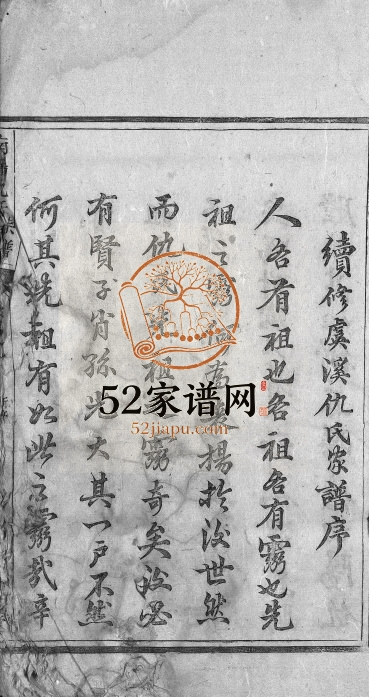 續修虞溪仇氏家譜序
人各有祖也各祖各有靈也先
祖之靈揚於後世然
而仇氏先祖靈奇矣後必
有賢子肖孫光大其户不然
何其先祖有如此之靈哉辛
52家谱网
52jiapu.com